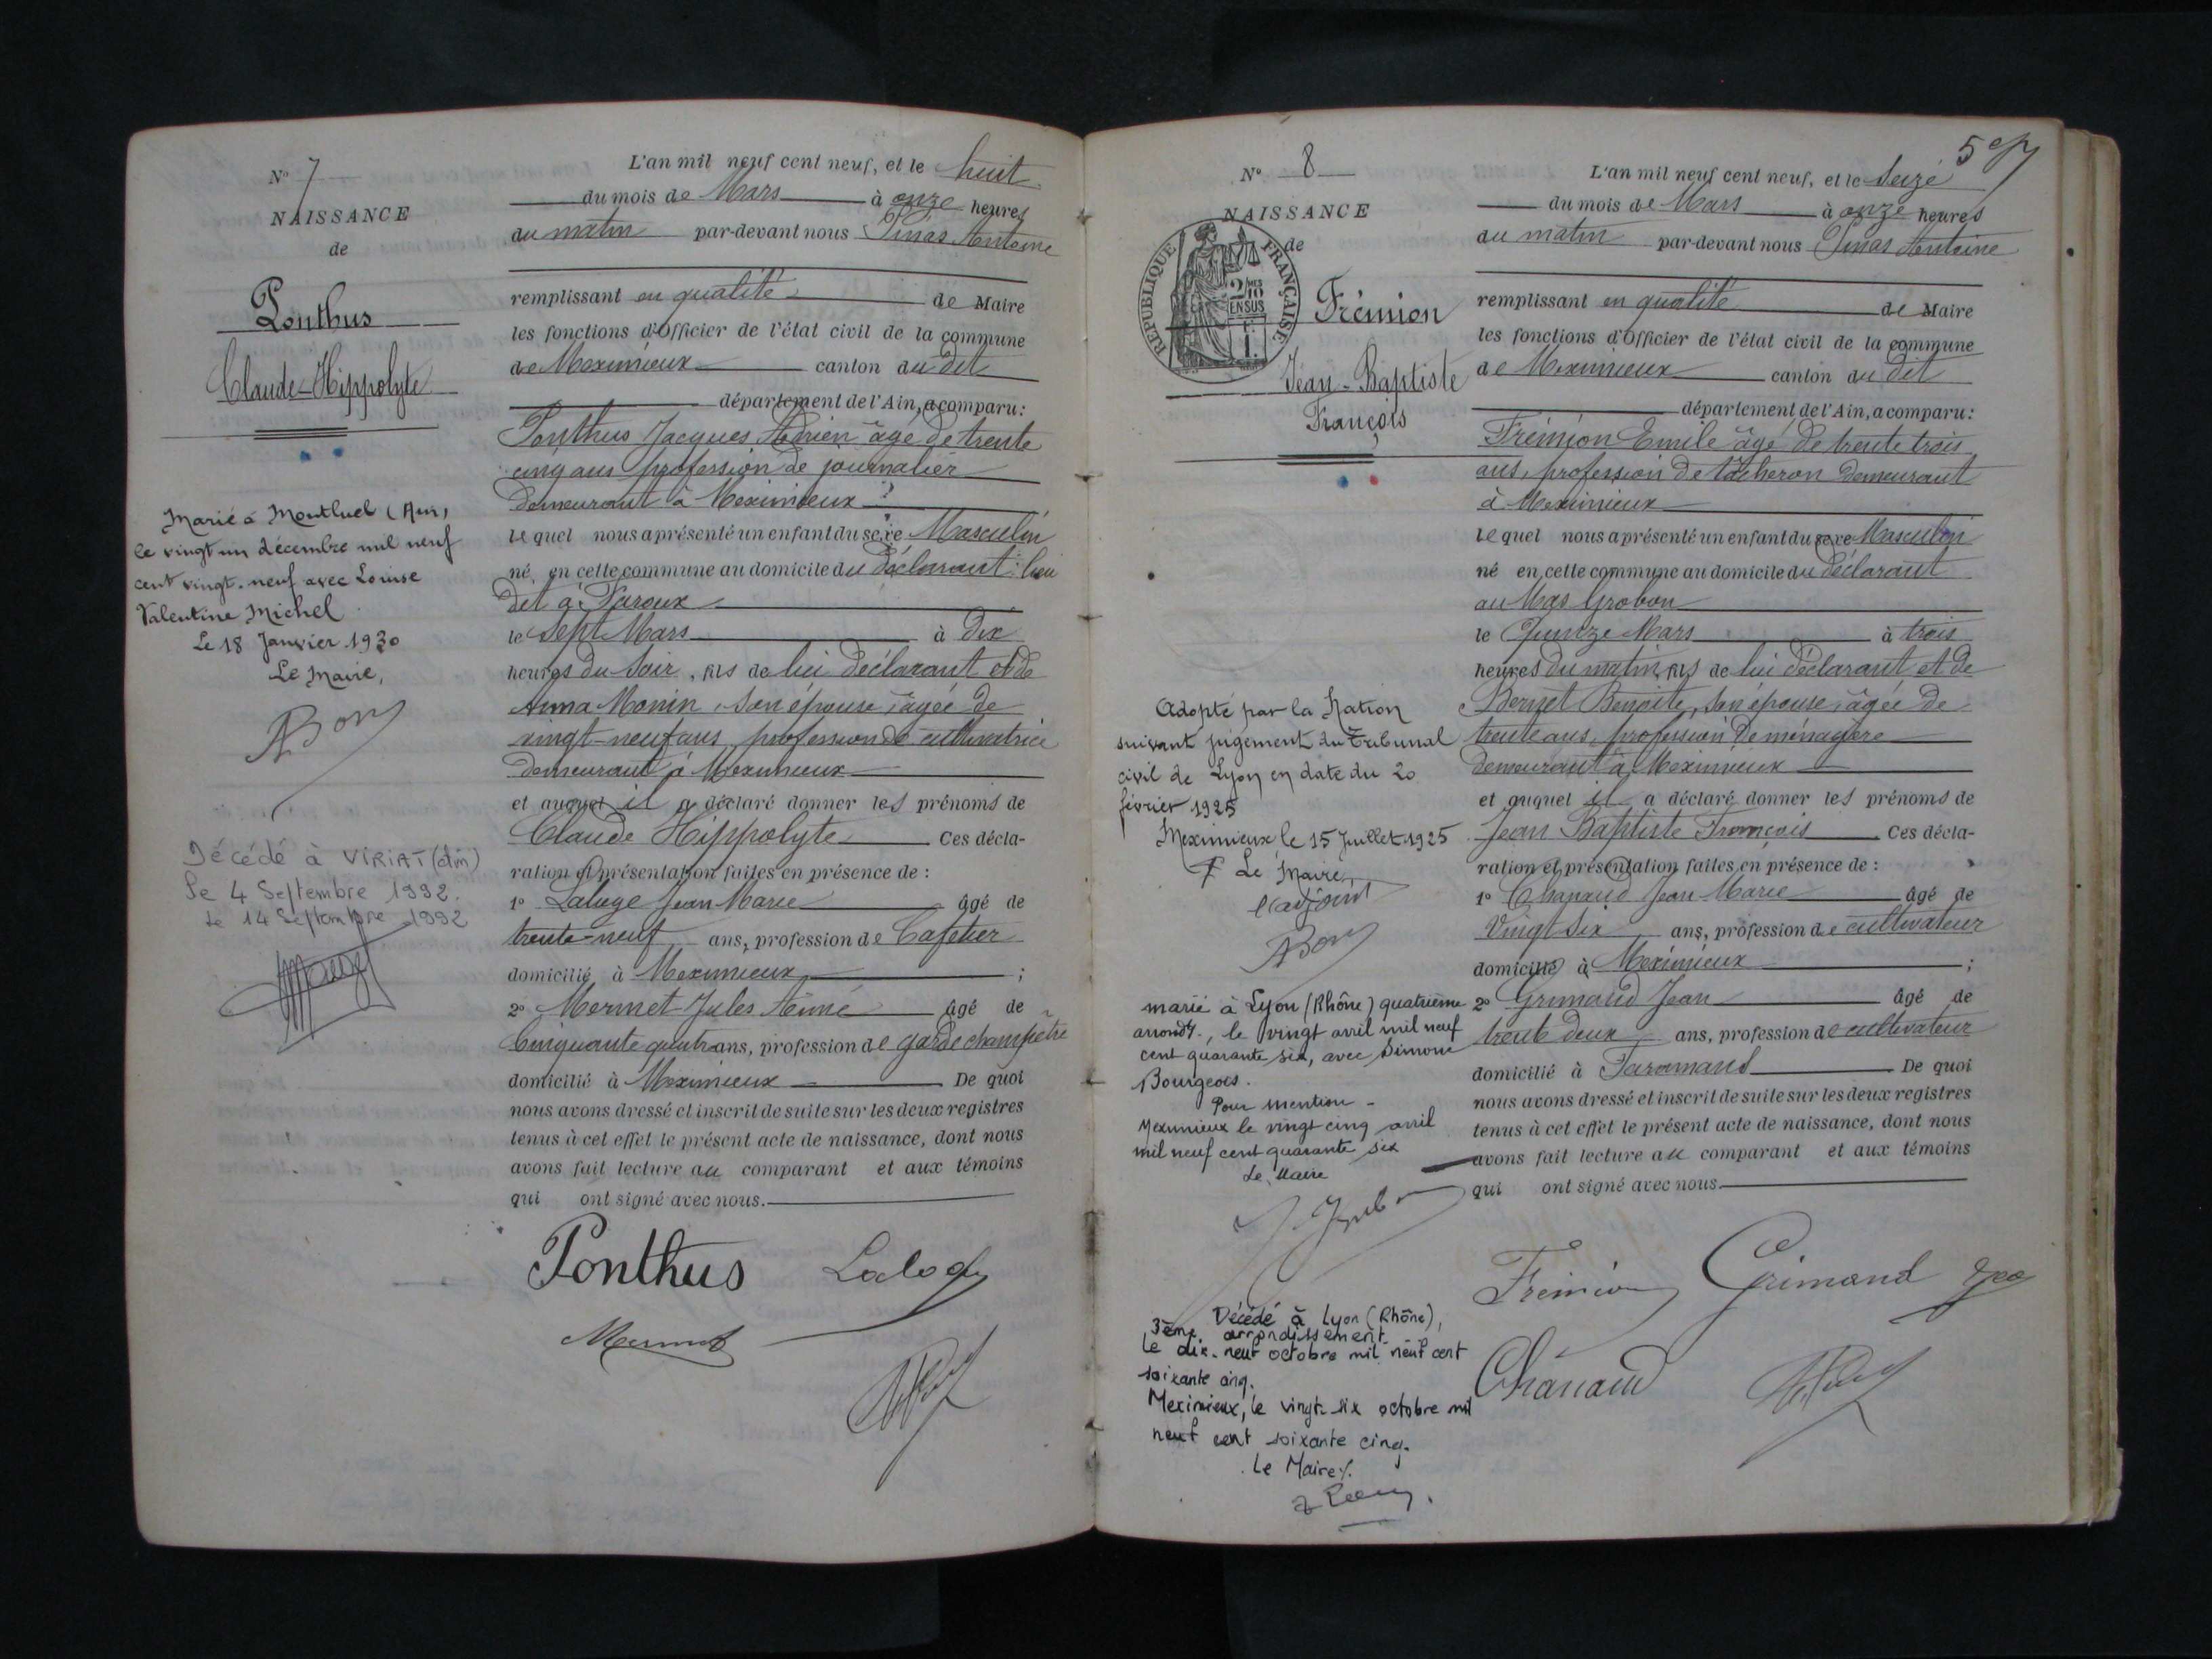 N° 7
NAISSANCE
de
Ponthus
Claude-Hippolyte
Marié à Montluel (Ain)
le vingt un décembre mil neuf
cent vingt-neuf avec Louise
Valentine Michel
Le 18 Janvier 1930
Le Maire,
Décédé à VIRIAT (Ain)
le 4 Septembre 1992.
Le 14 Septembre 1992
L'an mil neuf cent neuf, et le huit
du mois de Mars à onze heures
du matin par-devant nous Pinas Antoine
remplissant en qualité de Maire
les fonctions d'Officier de l'état civil de la commune
de Meximieux canton du dit
département de l'Ain, a comparu:
Ponthus Jacques Adrien âgé de trente
cinq ans profession de journalier
demeurant à Meximieux
lequel nous a présenté un enfant du sexe Masculin
né en cette commune au domicile du déclarant lieu
dit à
le Sept Mars à dix
heures du soir, fils de lui déclarant et de
Anna Monin, son épouse, âgée de
vingt-neuf ans, profession de cultivatrice
demeurant à Meximieux
et auquel il a déclaré donner les prénoms de
Claude Hippolyte Ces décla-
ration et présentation faites en présence de :
1° Jean Marie âgé de
trente-neuf ans, profession de Cafetier
domicilié à Meximieux ;
2° Mermet Jules Aimé âgé de
Cinquante quatre ans, profession de garde champêtre
domicilié à Meximieux De quoi
nous avons dressé et inscrit de suite sur les deux registres
tenus à cet effet le présent acte de naissance, dont nous
avons fait lecture au comparant et aux témoins
qui ont signé avec nous.
Ponthus
Mermet
N° 8
NAISSANCE
de
RÉPUBLIQUE FRANÇAISE
2/10 EN SUS
Frémion
Jean-Baptiste
François
Adopté par la Nation
suivant jugement du Tribunal
civil de Lyon en date du 20
février 1925
Meximieux le 15 Juillet 1925
Le Maire,
l'adjoint
marié à Lyon (Rhône) quatrième
arrondt., le vingt avril mil neuf
cent quarante six, avec Simone
Bourgeois.
Pour mention -
Meximieux le vingt cinq avril
mil neuf cent quarante six
Le Maire
Décédé à Lyon (Rhône),
3ème arrondissement
le dix-neuf octobre mil neuf cent
soixante cinq.
Meximieux, le vingt-six octobre mil
neuf cent soixante cinq.
Le Maire
L'an mil neuf cent neuf, et le Seize
du mois de Mars à onze heures
du matin par-devant nous Pinas Antoine
remplissant en qualité de Maire
les fonctions d'Officier de l'état civil de la commune
de Meximieux canton du dit
département de l'Ain, a comparu:
Frémion Emile âgé de trente trois
ans, profession de tâcheron demeurant
à Meximieux
lequel nous a présenté un enfant du sexe Masculin
né en cette commune au domicile du déclarant
au Mas Grobon
le Quinze Mars à trois
heures du matin, fils de lui déclarant et de
Bernet Benoite, son épouse, âgée de
trente ans, profession de ménagère
demeurant à Meximieux
et auquel il a déclaré donner les prénoms de
Jean Baptiste François Ces décla-
ration et présentation faites en présence de :
1° Chanaud Jean-Marie âgé de
Vingt Six ans, profession de cultivateur
domicilié à Meximieux ;
2° Grimand Jean âgé de
trente deux ans, profession de cultivateur
domicilié à Faramans De quoi
nous avons dressé et inscrit de suite sur les deux registres
tenus à cet effet le présent acte de naissance, dont nous
avons fait lecture au comparant et aux témoins
qui ont signé avec nous.
Frémion Grimand
Chanaud